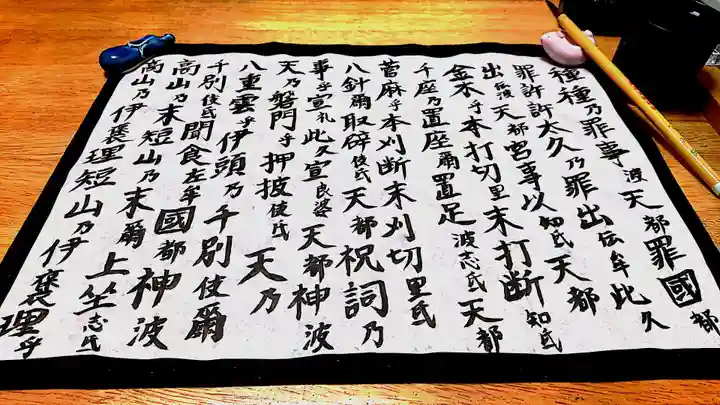 種種乃罪事波天都罪國都
罪許許太久乃罪出伝牟此久
出伝波天都宮事以知氐天都
金木乎本打切里末打断知氐
千座乃置座爾置足波志氐天都
菅麻乎本刈断末刈切里氐
八針爾取辟使氐天都祝詞乃
事乎宣礼此久宣良婆天都神波
天乃磐門乎押披使氐天乃
八重雲乎伊頭乃千別使爾
千別使氐聞食左牟國都神波
高山乃末短山乃末爾上坐志氐
高山乃伊褒理短山乃伊褒理乎